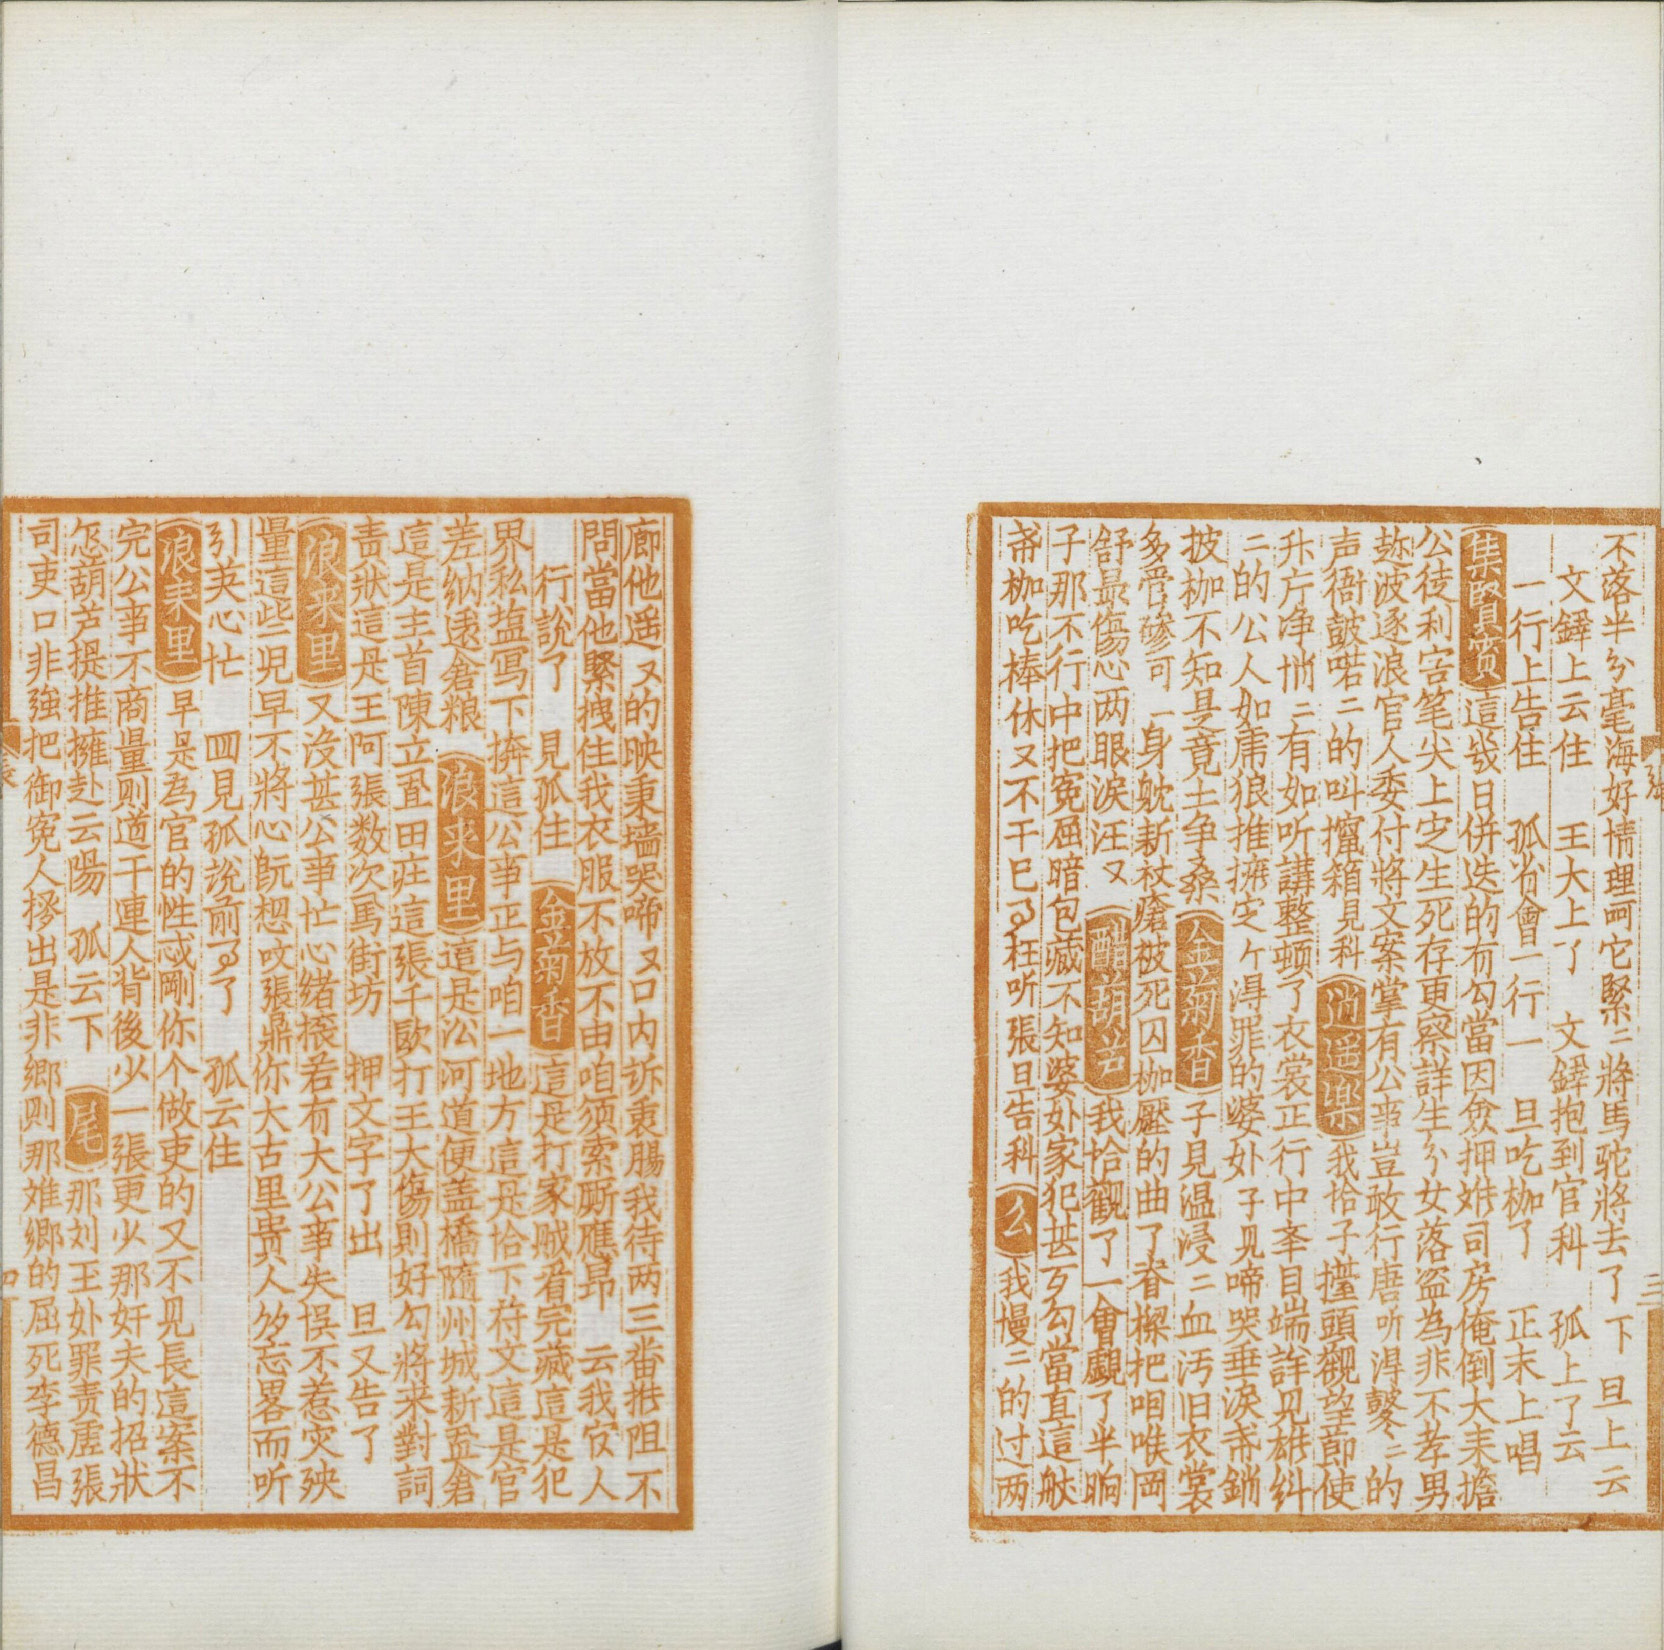 不落半分毫海好情理呵它緊二將馬駝將去了 下 旦上云
文鐸上云住 王大上了 文鐸抱到官科 孤上了云
一行上告住 孤省會一行一 旦吃枷了 正末上唱
集賢賓 這幾日併迭的有勾當因僉押姙司房俺倒大耒擔
公徒利害笔尖上定生死存更察詳生分女落盗為非不孝男
趂波逐浪官人委付將文案掌有公事豈敢行唐听淂鼕二的
声衙皷喏二的叫攛箱見科 逍遥樂 我恰子擡頭觀望節使
升㕔净悄二有如听講整頓了衣裳正行中李目端詳见雄糾
二的公人如虎狼推擁定个淂罪的婆处子见啼哭垂淚帶鎖
披枷不知是竟土争桒 金菊香 子見温浸二血汚旧衣裳
多管磣可一身躭新杖瘡被死囚枷壓的曲了脊樑把咱喉罔
舒最傷心两眼淚汪又 醋葫芦 我恰觀了一會覷了半晌
子那不行中把寃屈暗包藏不知婆处家犯甚歹勾當直這般
帶枷吃棒休又不干已了枉听張旦告科 么 我慢二的过两
廊他遥又的映秉墙哭啼又口内訴衷腸我待两三畨推阻不
問當他緊拽住我衣服不放不由咱须索厮應昂 云我寃人
行說了 見孤住 金菊香 這是打家贼看完藏這是犯
界私盐寫下捹這公事正与咱一地方這是恰下苻文這是官
差纳逺倉粮 浪来里 這是沁河道便盖橋隨州城新盖倉
這是主首陳立直田庄這張千歐打王大傷則好勾將来對詞
责状這是王阿張数次罵街坊 押文字了出 旦又告了
浪来里 又沒甚公事忙心緒㨰若有大公事失悮不惹灾殃
量這些児早不將心旣想哎張鼎你大古里贵人多忘畧而听
引英心忙 四見孤說前了了 孤云住
浪来里 早是為官的性忒剛你个做吏的又不见長這案不
完公事不商量则道干連人背後少一張更少那奸夫的招狀
怎葫芦提推擁赴云陽 孤云下 尾 那刘王处罪责虗張
司吏口非強把御寃人摎出是非鄉则那𡚸鄉的屈死李德昌